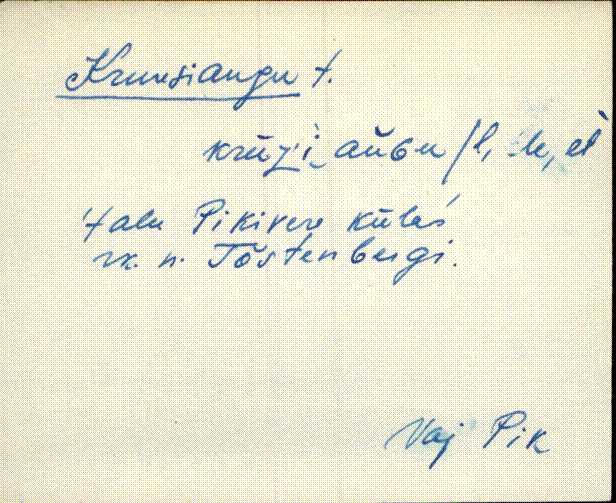 Kruusiaugu t.
krūzi‿auɢu /l, -le, -lt
'talu Pikivere külas'
rk. n. Tõstenbergi.
Vaj Pik